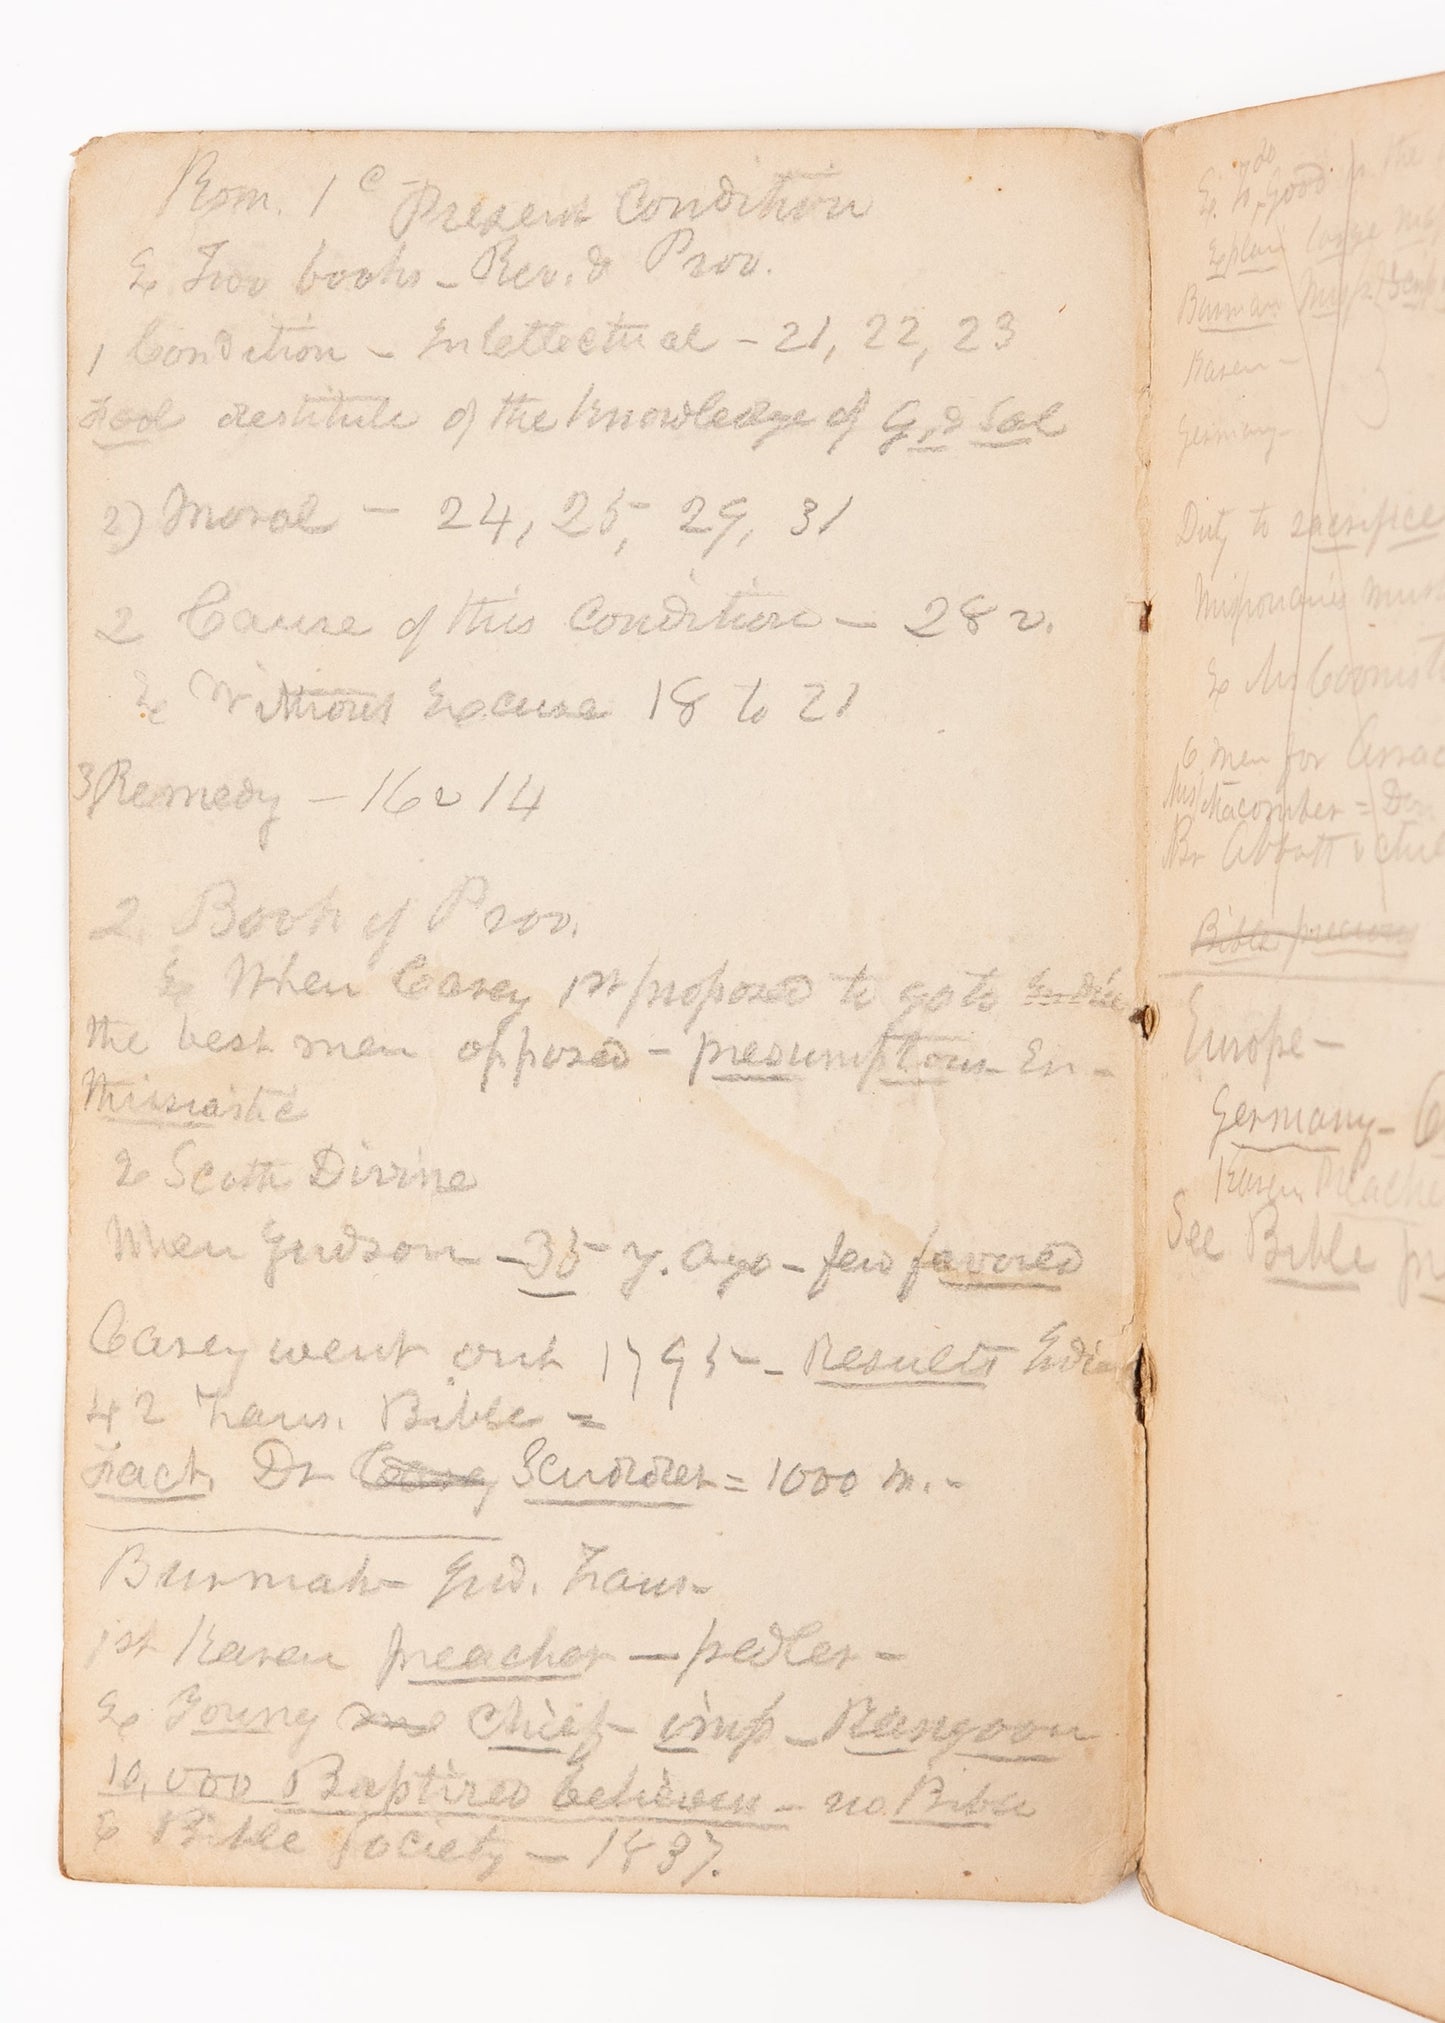 Rom. 1 c - Present Condition
Ex Two books - Rev. & Prov.
1 Condition - Intellectual - 21, 22, 23
destitute of the knowledge of G. & Sal
1) Moral - 24, 25, 29, 31
2 Cause of this Condition - 28 v.
Ex Without Excuse 18 to 21
3 Remedy - 16 v 14
2. Book of Prov.
Ex When Carey 1st proposed to go to India
the best men opposed - presumptous En-
thusiastic
Ex Scotth Divine
When Judson - 35 y. ago - few favored
Carey went out 1795 - Results India
42 Trans. Bible =
Fact. Dr Carey Scudder = 1000 m. -
Burmah - Jud. Trans
1st Karen preacher - pedler -
Ex Young chief - imp - Rangoon
10,000 Baptized believers - no Bible
Ex Bible Society - 1837.
Ex. To do good in the
Explain large
Burman Miss.
Karen -
Germany -
Duty to sacrifice
Missionaries must
Ex Mr
6 men for Arrac
Mrs Macomber =
Br Abbott &
Bible precious
Europe -
Germany -
Karen Preache
See Bible pr